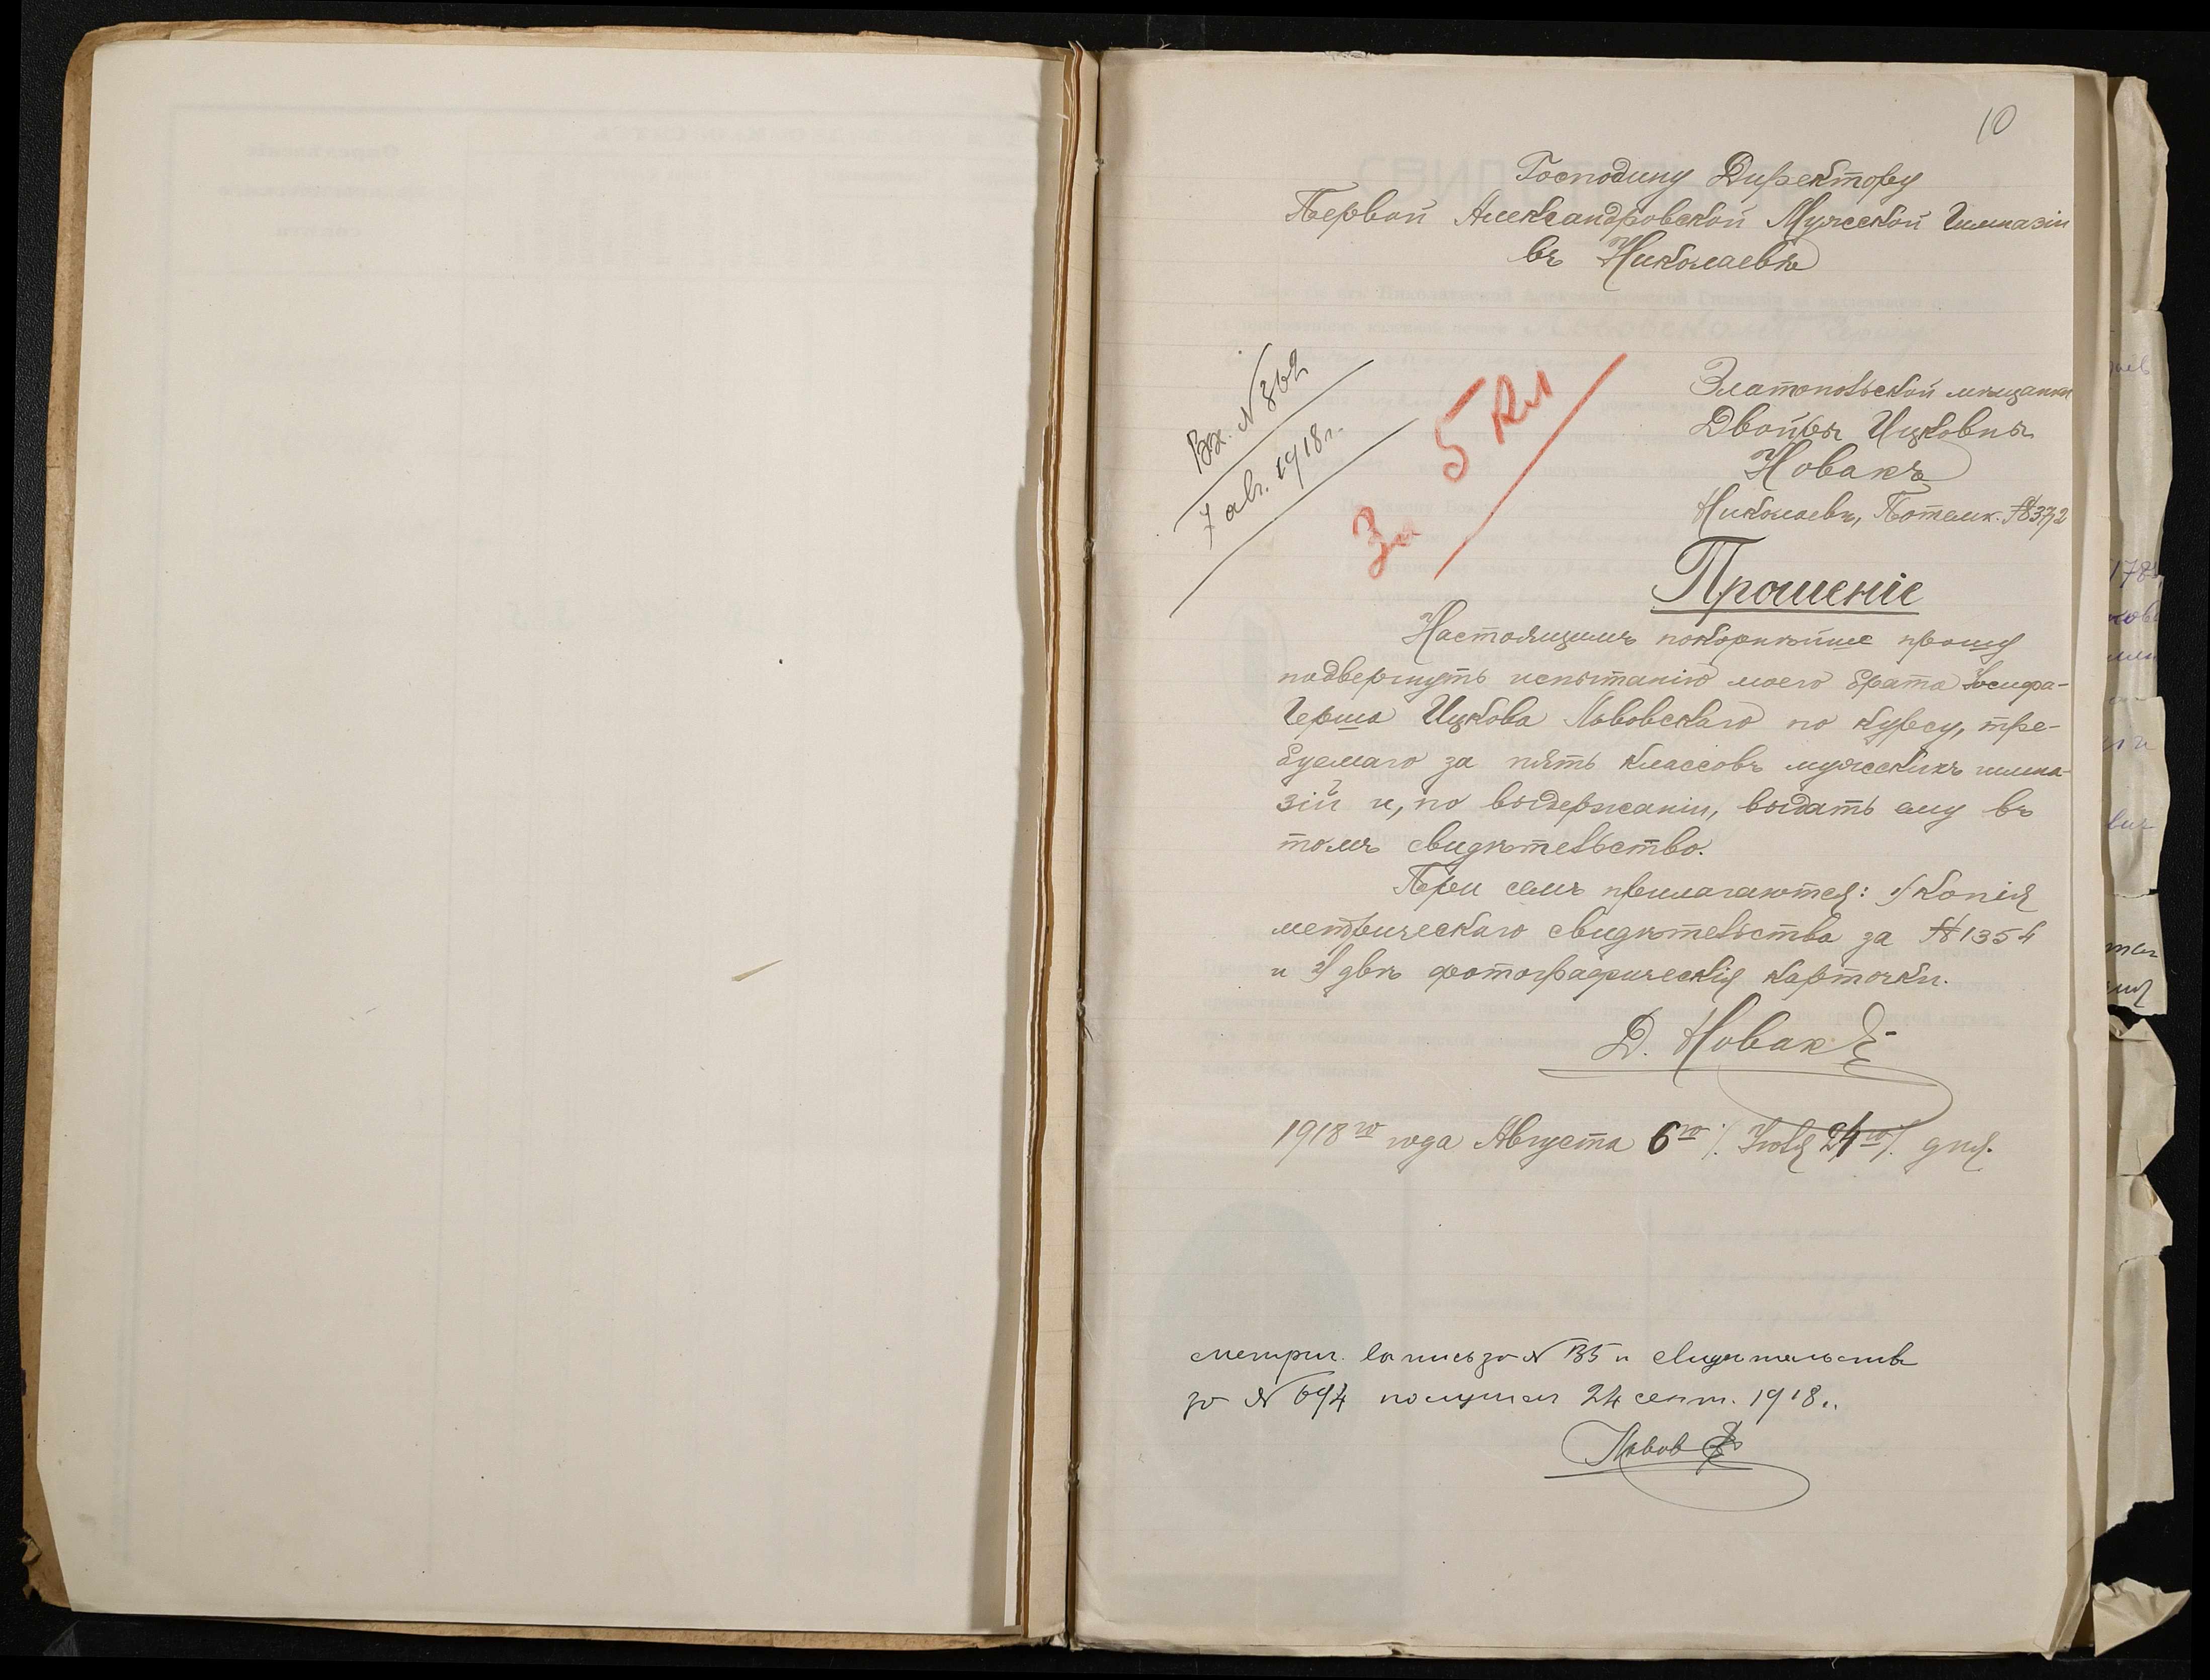 10
Господину Директору
Первой Александровской Мужской Гимназіи
въ Николаевѣ
Вх. № 362
7 авг. 1918 г.
За 5 кл
Златопольской мѣщанки
Двойры Ицковны
Новакъ
Николаевъ, Потемк. № 37/2
Прошеніе
Настоящимъ покорнѣйше прошу
подвергнуть испытанію моего брата Іосифа-
Герша Ицкова Львовскаго по курсу, тре-
буемаго за пять классовъ мужскихъ гимна-
зій и, по выдержаніи, выдать ему въ
томъ свидѣтельство.
При семъ прилагаются: 1/ копія
метрическаго свидѣтельства за № 1354
и 2/ двѣ фотографическія карточки.
Д. Новакъ
1918го года Августа 6го /. Іюля 24го/. дня.
метрич. выпись за № 135 и свидѣтельство
за № 694 получил 24 сент. 1918 г.